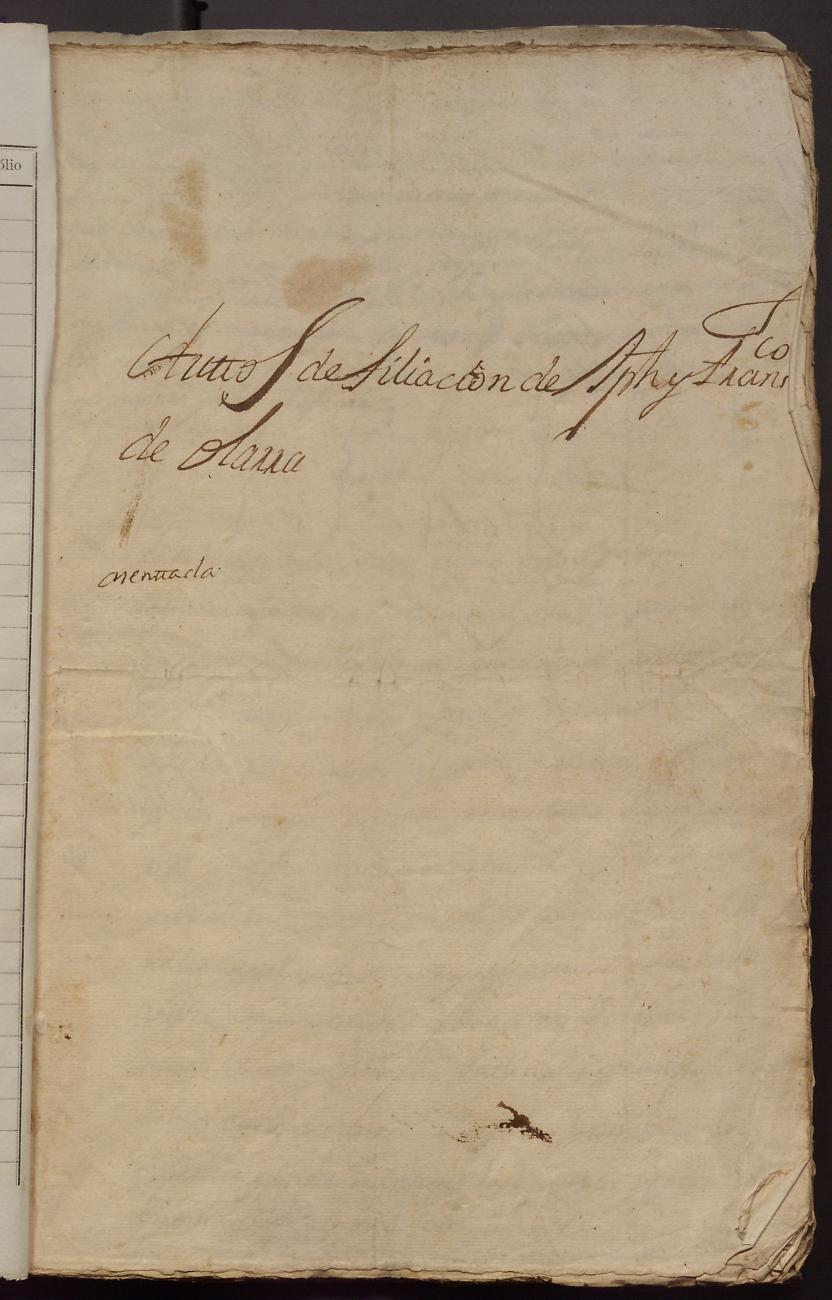 ólio
Auttos de filiacion de Jph y Franco
de olarra
asenttada